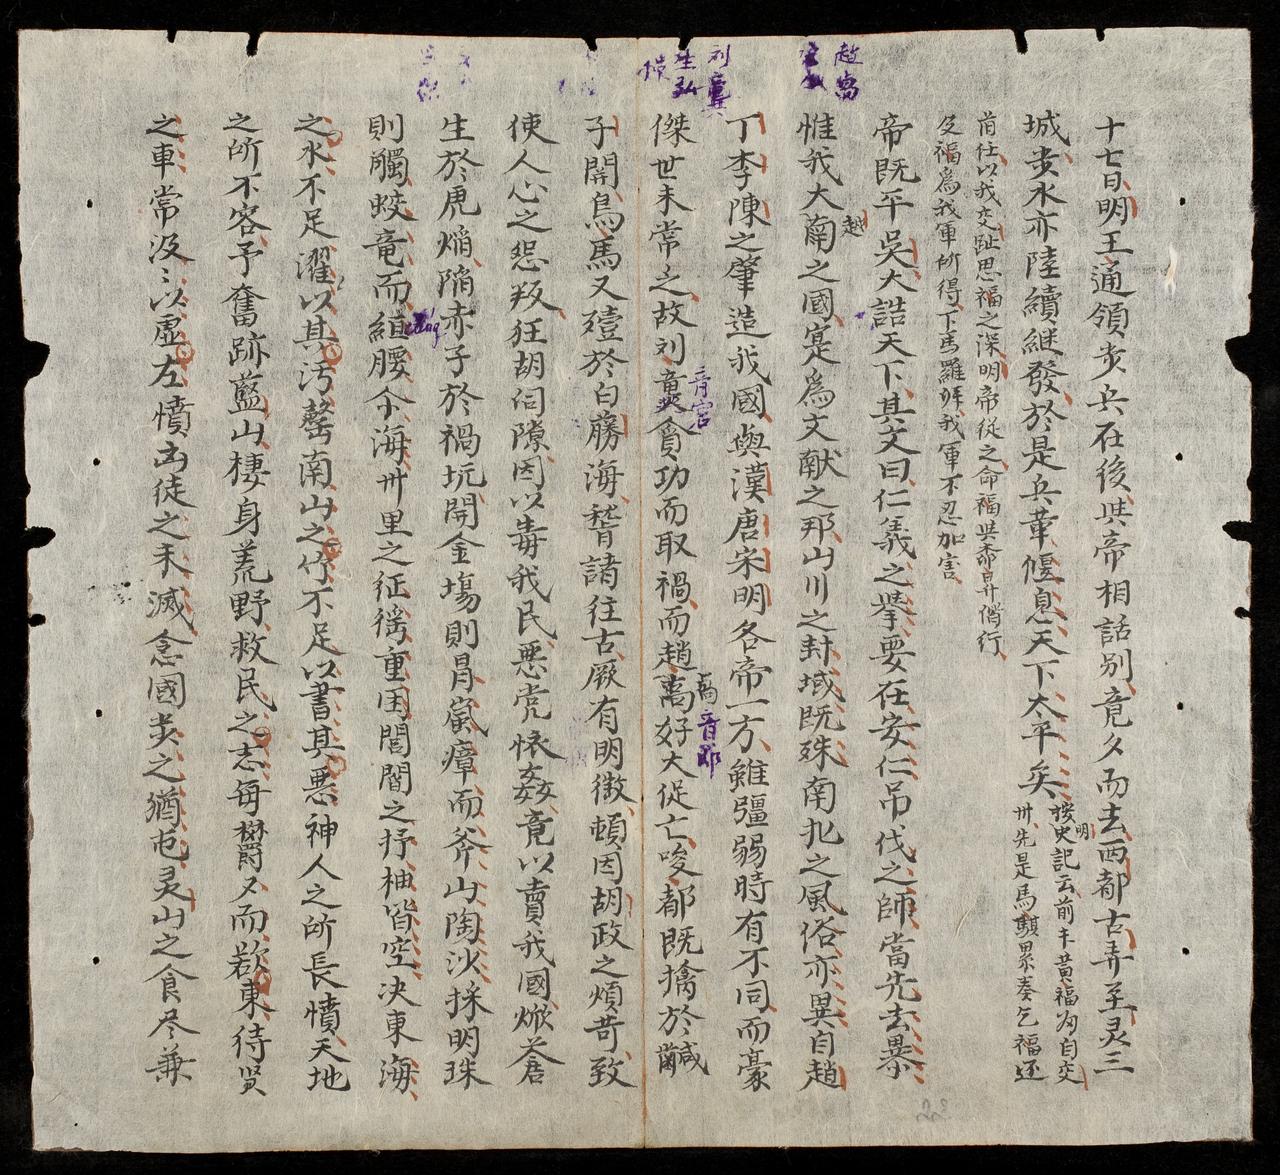 十七日明王通領步兵在後與帝相話別竟夕而去西都古弄至灵三
城步水亦陸續継發於是兵革偃息天下太平矣
按明史記云前年黄福為自交
州先是馬騏累奏乞福还
前仕以我交趾思福之深明帝従之命福與柰昇偕行
及福為我軍所得下馬羅拜我軍不忍加害
帝既平吳大誥天下其文曰仁義之擧要在安仁吊伐之師當先去暴
惟我大越之國寔為文献之邦山川之封域既殊南北之風俗亦異自趙
丁李陳之肇造我國與漢唐宋明各帝一方雖彊弱時有不同而豪
傑世未常之故刘䶮貪功而取禍而趙禼好大促亡唆都既擒於鹹
子関烏馬又殪於白藤海嵆諸往古厥有明徴頓因胡政之煩苛致
使人心之怨叛狂胡伺隙因以毒我民悪党懐姦竟以賣我國焮蒼
生於虎焔陥赤子於禍坑開金塲則冐嵐瘴而斧山陶沙採明珠
則觸蛟竜而緪腰汆海卅里之征徭重困閭閻之抒柚皆空决東海
之水不足濯以其汚罄南山之竹不足以書其悪神人之所長憤天地
之所不容予奮跡藍山棲身荒野救民之志每欝夕而欲東待贤
之車常汲汲以虚左憤凶徒之未滅念國步之猶屯灵山之食尽兼
趙禼
刘䶮
生弘
操
音宮
禼音郎